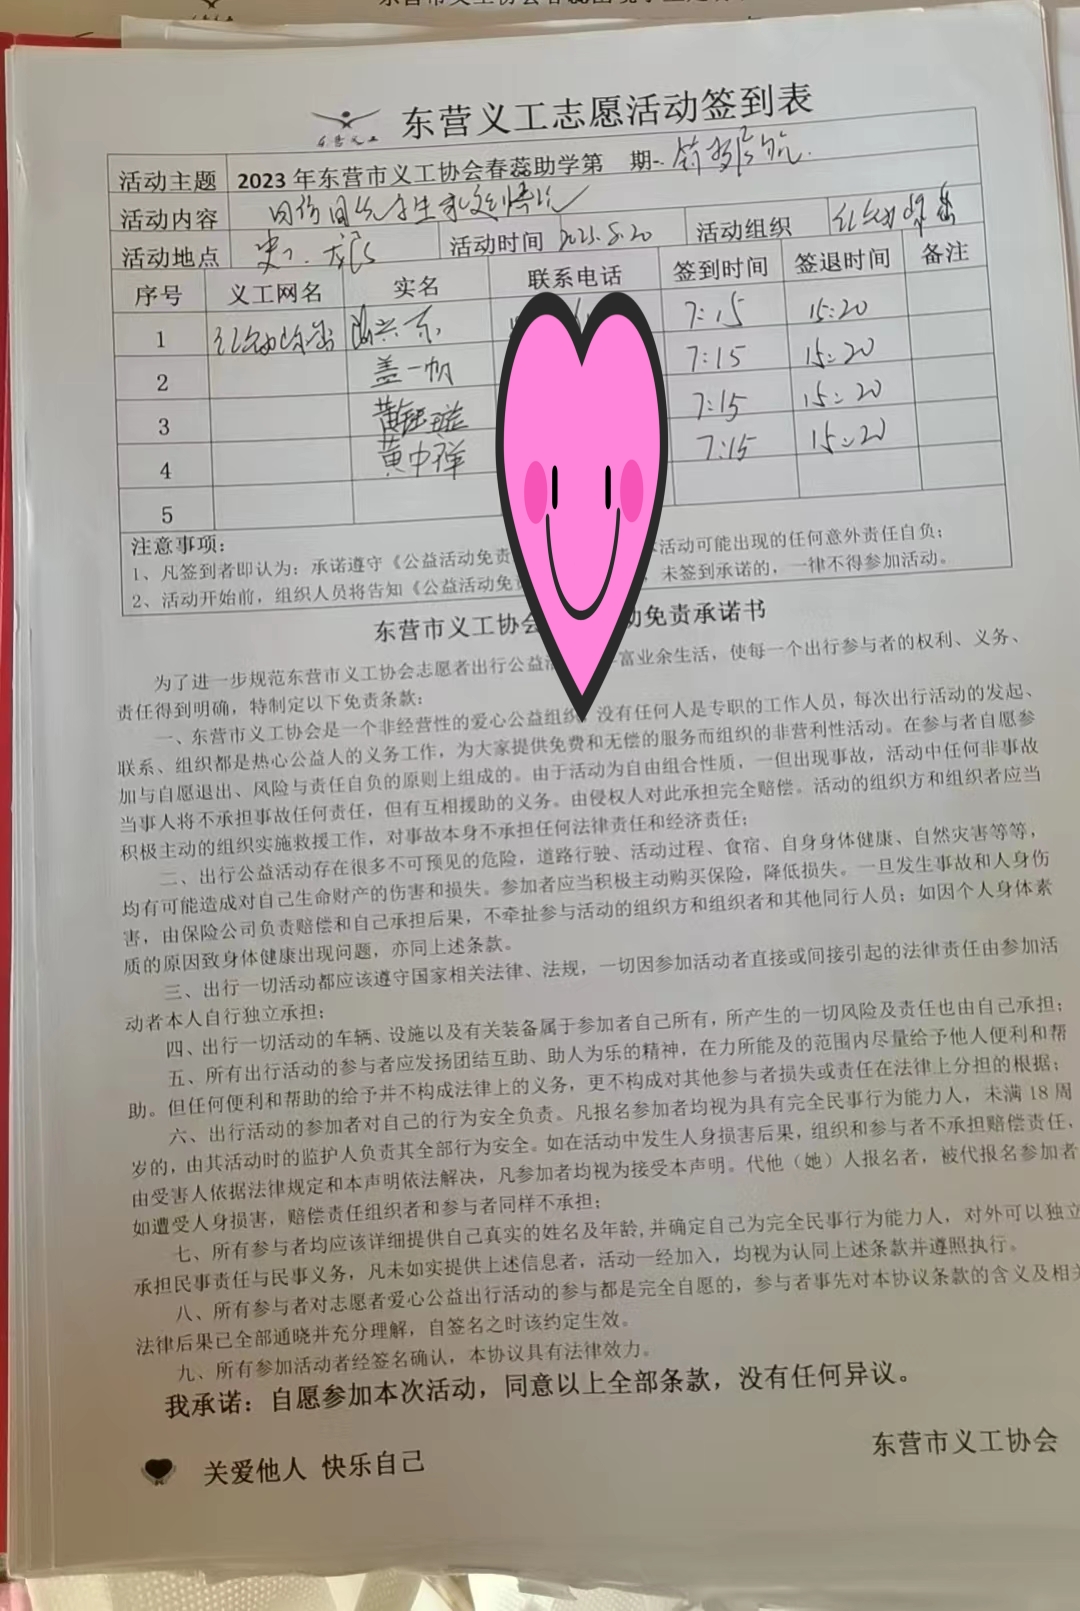 东营义工
东营义工志愿活动签到表
活动主题 2023年东营市义工协会春蕊助学第 期-
活动内容
活动地点 活动时间 2023.5.20 活动组织
序号 义工网名 实名 联系电话 签到时间 签退时间 备注
1 7:15 15:20
2 盖一帆 7:15 15:20
3 黄 7:15 15:20
4 黄中禅 7:15 15:20
5
注意事项：
1、凡签到者即认为：承诺遵守《公益活动免责 活动可能出现的任何意外责任自负；
2、活动开始前，组织人员将告知《公益活动免责 ，未签到承诺的，一律不得参加活动。
东营市义工协会 动免责承诺书
为了进一步规范东营市义工协会志愿者出行公益活 富业余生活，使每一个出行参与者的权利、义务、
责任得到明确，特制定以下免责条款：
一、东营市义工协会是一个非经营性的爱心公益组织，没有任何人是专职的工作人员，每次出行活动的发起、
联系、组织都是热心公益人的义务工作，为大家提供免费和无偿的服务而组织的非营利性活动。在参与者自愿参
加与自愿退出、风险与责任自负的原则上组成的。由于活动为自由组合性质，一但出现事故，活动中任何非事故
当事人将不承担事故任何责任，但有互相援助的义务。由侵权人对此承担完全赔偿。活动的组织方和组织者应当
积极主动的组织实施救援工作，对事故本身不承担任何法律责任和经济责任；
二、出行公益活动存在很多不可预见的危险，道路行驶、活动过程、食宿、自身身体健康、自然灾害等等，
均有可能造成对自己生命财产的伤害和损失。参加者应当积极主动购买保险，降低损失。一旦发生事故和人身伤
害，由保险公司负责赔偿和自己承担后果，不牵扯参与活动的组织方和组织者和其他同行人员；如因个人身体素
质的原因致身体健康出现问题，亦同上述条款。
三、出行一切活动都应该遵守国家相关法律、法规，一切因参加活动者直接或间接引起的法律责任由参加活
动者本人自行独立承担；
四、出行一切活动的车辆、设施以及有关装备属于参加者自己所有，所产生的一切风险及责任也由自己承担；
五、所有出行活动的参与者应发扬团结互助、助人为乐的精神，在力所能及的范围内尽量给予他人便利和帮
助。但任何便利和帮助的给予并不构成法律上的义务，更不构成对其他参与者损失或责任在法律上分担的根据；
六、出行活动的参加者对自己的行为安全负责。凡报名参加者均视为具有完全民事行为能力人，未满18周
岁的，由其活动时的监护人负责其全部行为安全。如在活动中发生人身损害后果，组织和参与者不承担赔偿责任，
由受害人依据法律规定和本声明依法解决，凡参加者均视为接受本声明。代他（她）人报名者，被代报名参加者
如遭受人身损害，赔偿责任组织者和参与者同样不承担；
七、所有参与者均应该详细提供自己真实的姓名及年龄，并确定自己为完全民事行为能力人，对外可以独立
承担民事责任与民事义务，凡未如实提供上述信息者，活动一经加入，均视为认同上述条款并遵照执行。
八、所有参与者对志愿者爱心公益出行活动的参与都是完全自愿的，参与者事先对本协议条款的含义及相关
法律后果已全部通晓并充分理解，自签名之时该约定生效。
九、所有参加活动者经签名确认，本协议具有法律效力。
我承诺：自愿参加本次活动，同意以上全部条款，没有任何异议。
东营市义工协会
关爱他人 快乐自己